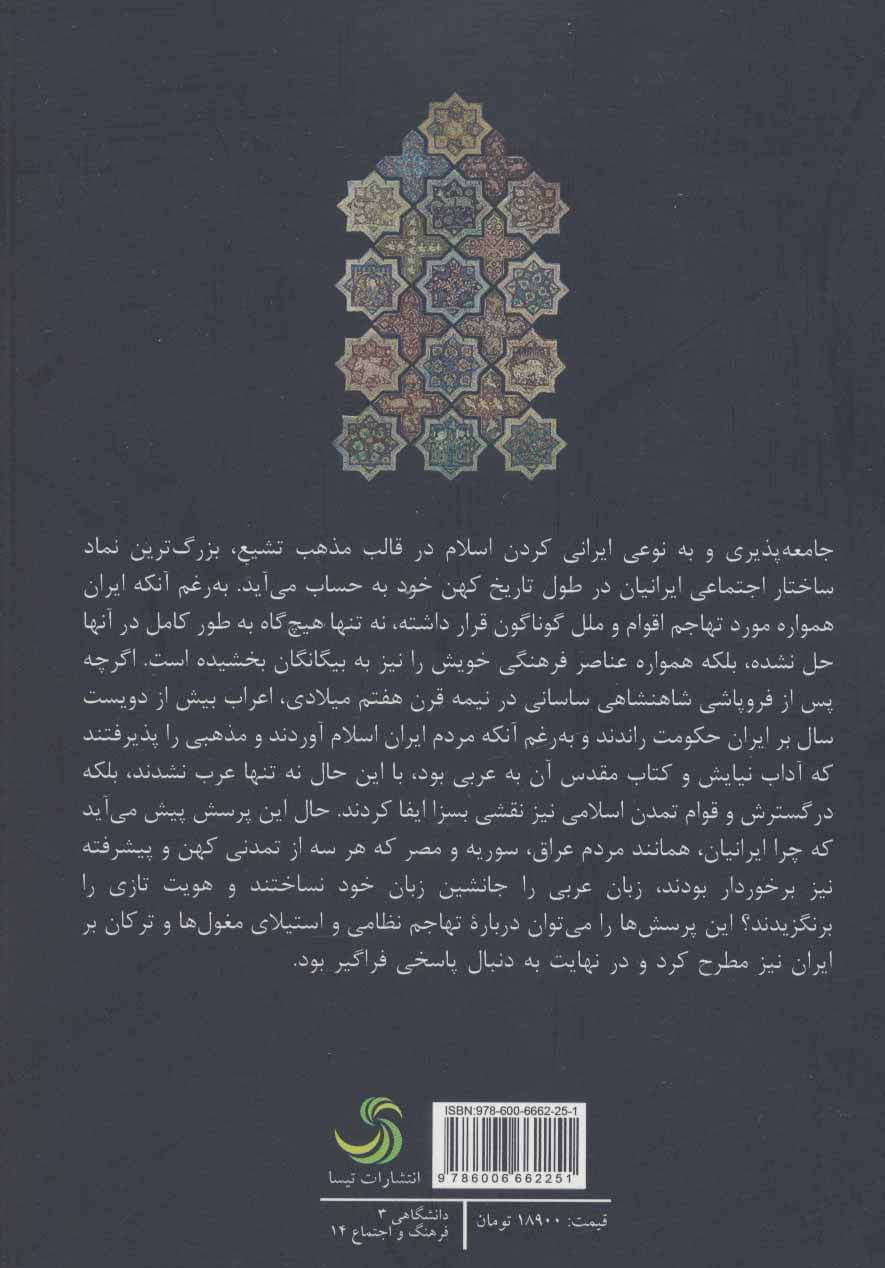 جامعه‌پذیری و به نوعی ایرانی کردن اسلام در قالب مذهب تشیع، بزرگ‌ترین نماد
ساختار اجتماعی ایرانیان در طول تاریخ کهن خود به حساب می‌آید. به‌رغم آنکه ایران
همواره مورد تهاجم اقوام و ملل گوناگون قرار داشته، نه تنها هیچ‌گاه به طور کامل در آنها
حل نشده، بلکه همواره عناصر فرهنگی خویش را نیز به بیگانگان بخشیده است. اگرچه
پس از فروپاشی شاهنشاهی ساسانی در نیمه قرن هفتم میلادی، اعراب بیش از دویست
سال بر ایران حکومت راندند و به‌رغم آنکه مردم ایران اسلام آوردند و مذهبی را پذیرفتند
که آداب نیایش و کتاب مقدس آن به عربی بود، با این حال نه تنها عرب نشدند، بلکه
در گسترش و قوام تمدن اسلامی نیز نقشی بسزا ایفا کردند. حال این پرسش پیش می‌آید
که چرا ایرانیان، همانند مردم عراق، سوریه و مصر که هر سه از تمدنی کهن و پیشرفته
نیز برخوردار بودند، زبان عربی را جانشین زبان خود نساختند و هویت تازی را
برنگزیدند؟ این پرسش‌ها را می‌توان دربارهٔ تهاجم نظامی و استیلای مغول‌ها و ترکان بر
ایران نیز مطرح کرد و در نهایت به دنبال پاسخی فراگیر بود.
ISBN:978-600-6662-25-1
9 786006 662251
انتشارات تیسا
قیمت: ۱۸۹۰۰ تومان
دانشگاهی ۳
فرهنگ و اجتماع ۱۴